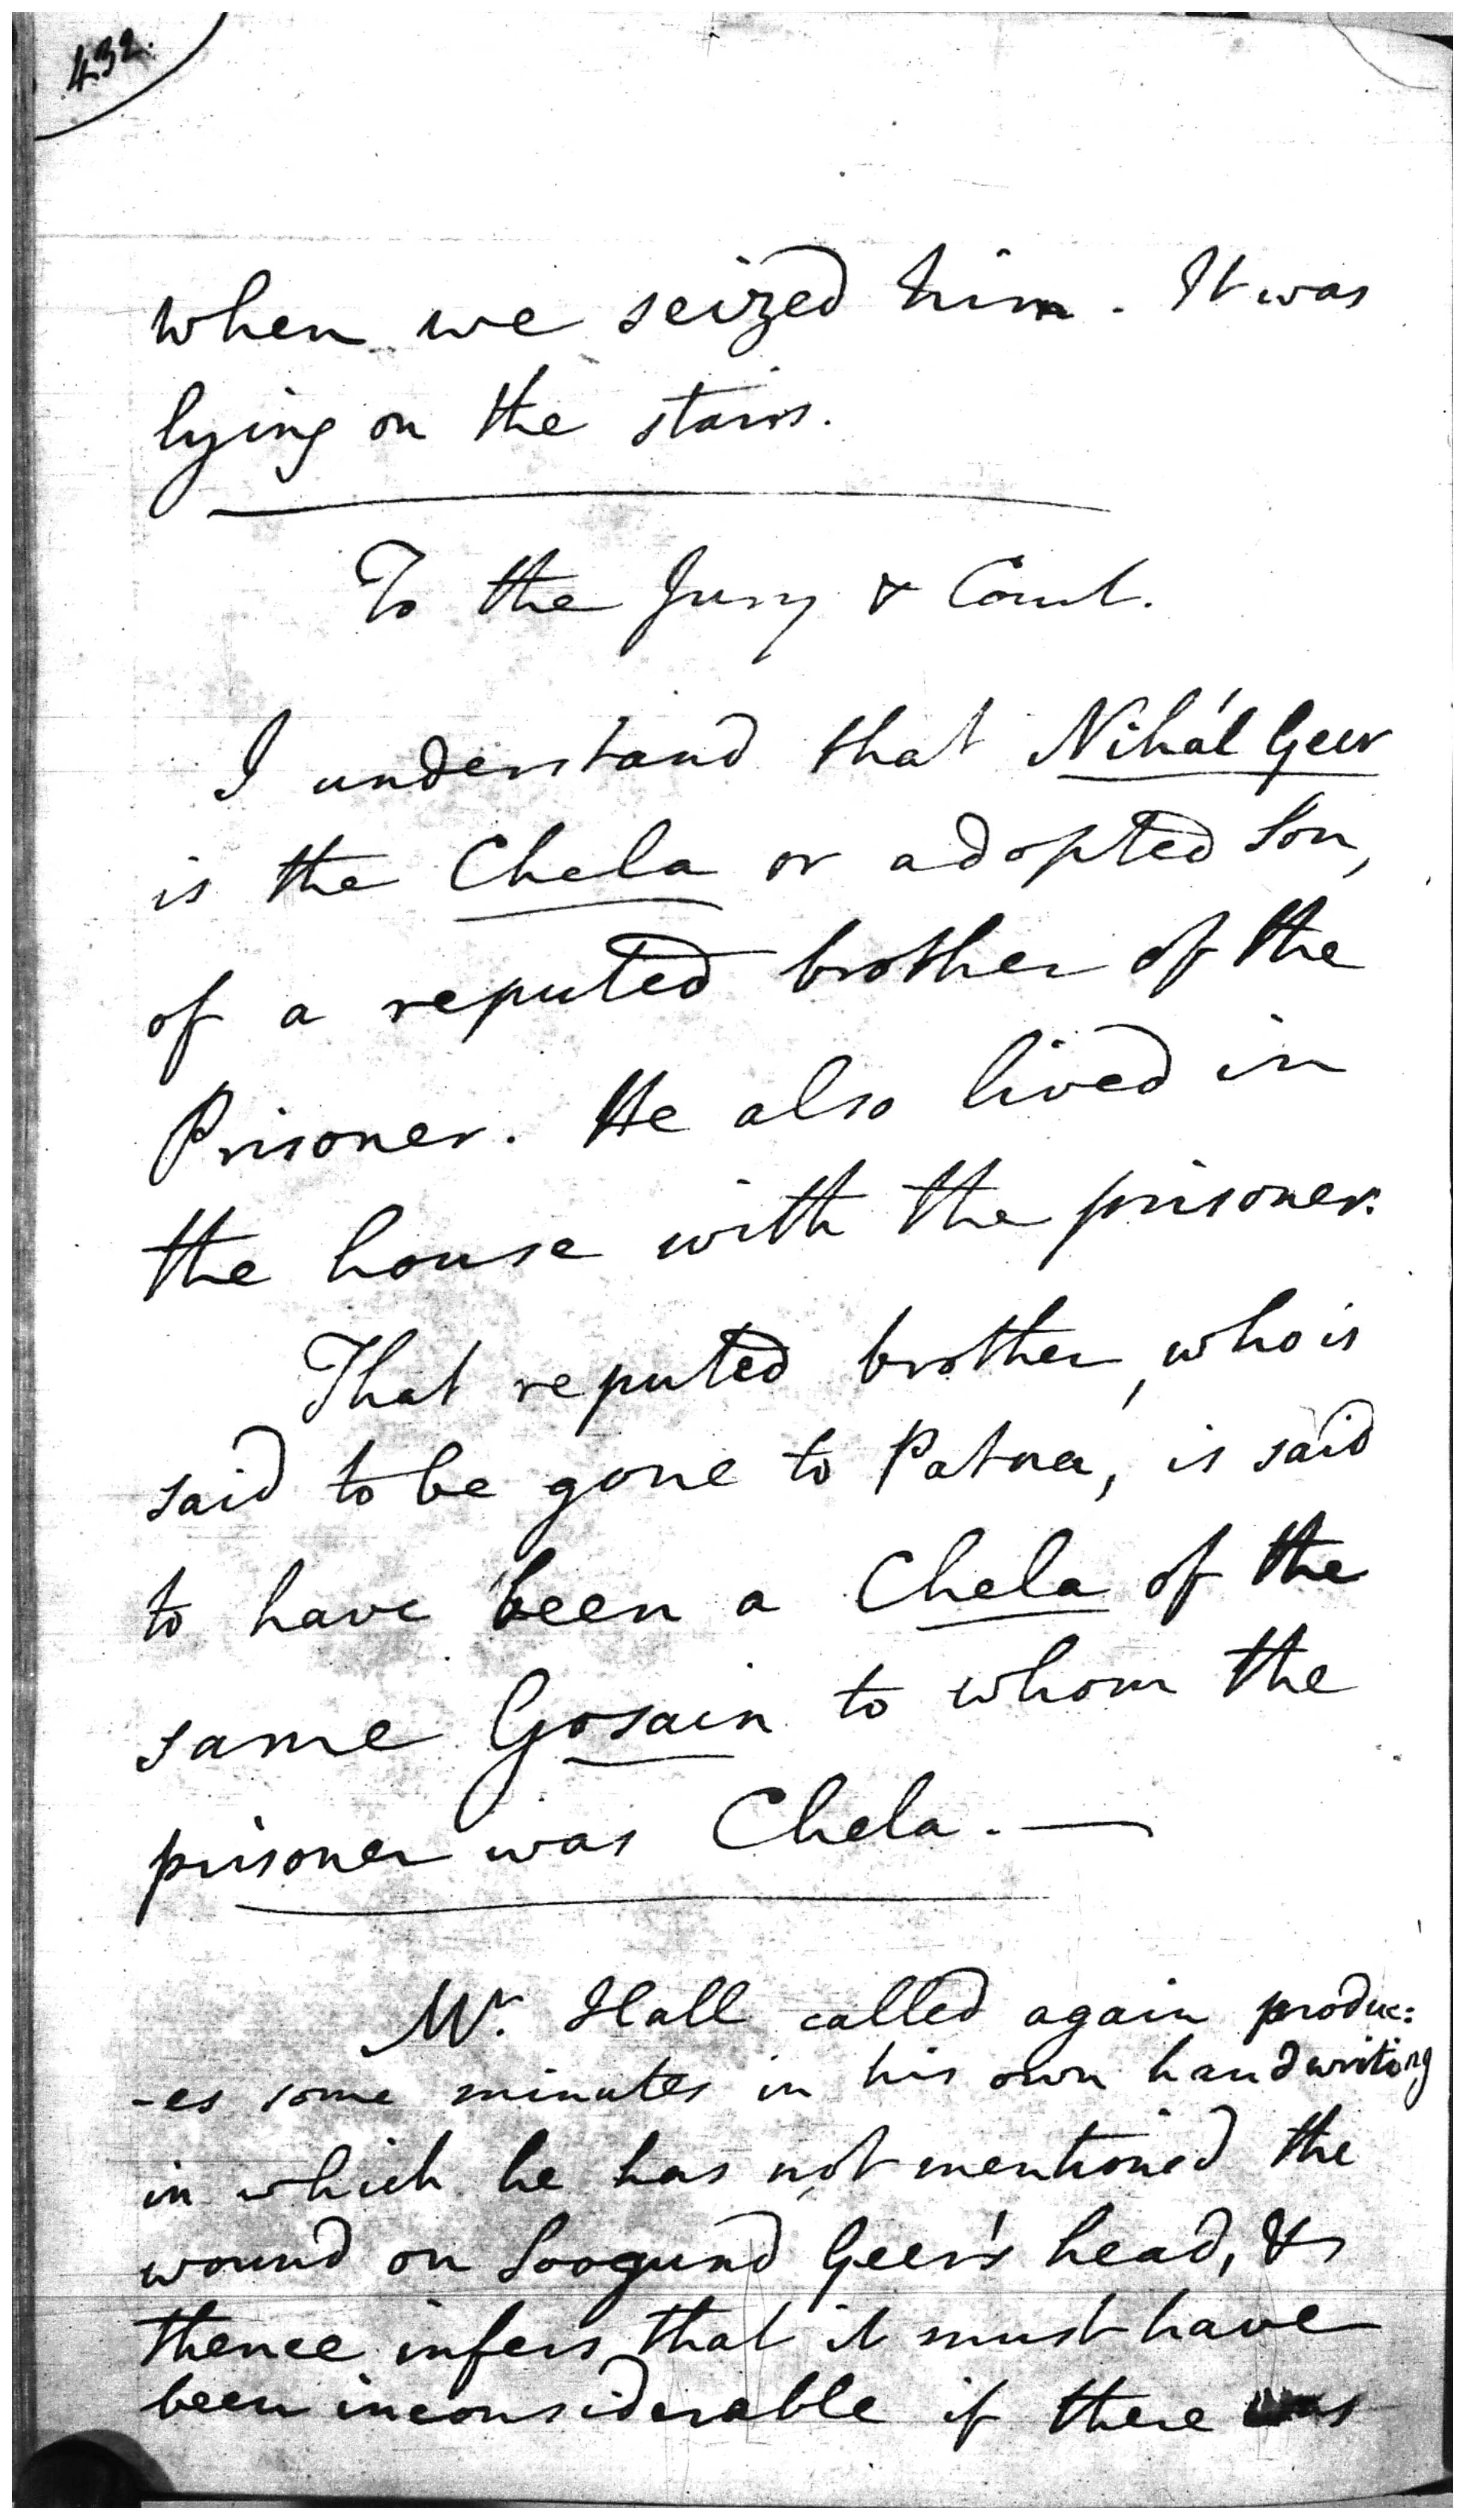 432.
when we seized him. It was
lying on the stairs.
To the Jury & Court.
I understand that Nihál Geer
is the Chela or adopted Son,
of a reputed brother of the
Prisoner. He also lived in
the house with the prisoner.
That reputed brother, who is
said to be gone to Patna, is said
to have been a Chela of the
same Gosain to whom the
prisoner was Chela. —
Mr. Hall called again produc:
-es some minutes in his own handwriting
in which he has not mentioned the
wound on Soogund Geer's head, &
thence infers that it must have
been inconsiderable if there was